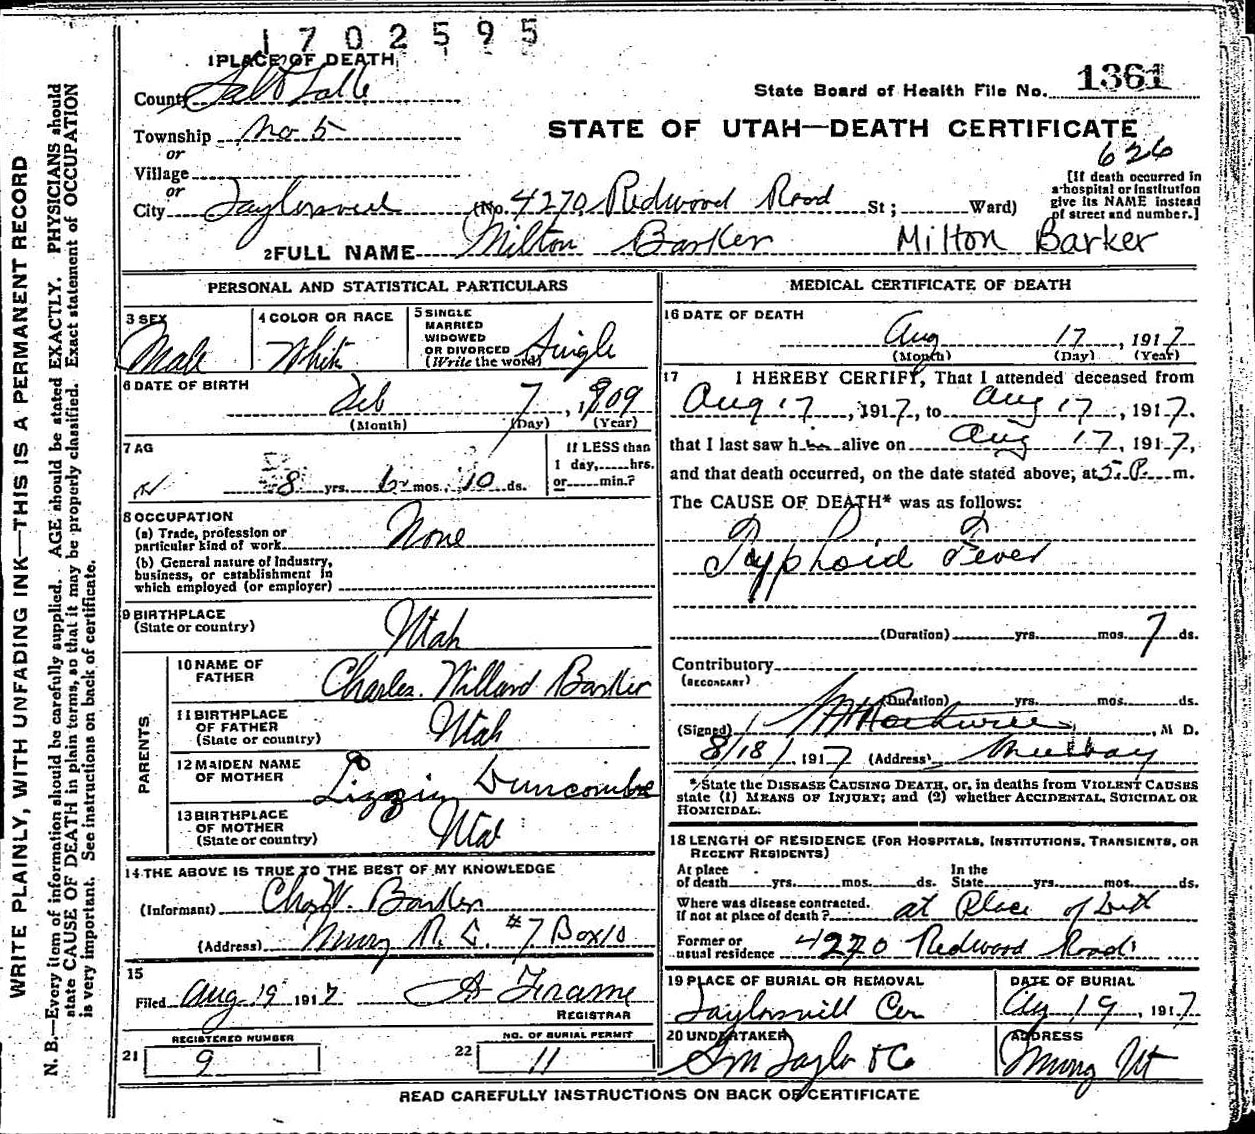 1702595
1 PLACE OF DEATH
County Salt Lake
State Board of Health File No. 1361
Township No 5
STATE OF UTAH—DEATH CERTIFICATE
or
626
Village
or
[If death occurred in a hospital or institution give its NAME instead of street and number.]
City Taylorsvill (No. 4270 Redwood Road St; Ward)
2 FULL NAME Milton Barker Milton Barker
PERSONAL AND STATISTICAL PARTICULARS
3 SEX Male
4 COLOR OR RACE White
5 SINGLE MARRIED WIDOWED OR DIVORCED (Write the word) Single
6 DATE OF BIRTH
Feb 7, 1909
(Month) (Day) (Year)
7 AG
8 yrs. 6 mos. 10 ds.
If LESS than 1 day, hrs. or min.?
8 OCCUPATION
(a) Trade, profession or particular kind of work None
(b) General nature of Industry, business, or establishment in which employed (or employer)
9 BIRTHPLACE
(State or country) Utah
PARENTS
10 NAME OF FATHER Charles Willard Barker
11 BIRTHPLACE OF FATHER (State or country) Utah
12 MAIDEN NAME OF MOTHER Lizzie Duncombe
13 BIRTHPLACE OF MOTHER (State or country) Utah
14 THE ABOVE IS TRUE TO THE BEST OF MY KNOWLEDGE
(Informant) Chas W. Barker
(Address) Murray R. #7 Box 10
15
Filed Aug 19 1917
REGISTRAR
REGISTERED NUMBER
21 9
NO. OF BURIAL PERMIT
22 11
MEDICAL CERTIFICATE OF DEATH
16 DATE OF DEATH
Aug 17, 1917
(Month) (Day) (Year)
17 I HEREBY CERTIFY, That I attended deceased from
Aug 17, 1917, to Aug 17, 1917,
that I last saw him alive on Aug 17, 1917,
and that death occurred, on the date stated above, at 5 P. m.
The CAUSE OF DEATH* was as follows:
Typhoid Fever
(Duration) yrs. mos. 7 ds.
Contributory
(SECONDARY)
(Duration) yrs. mos. ds.
(Signed) , M D.
8/18/1917 (Address) Murray
*State the DISEASE CAUSING DEATH, or, in deaths from VIOLENT CAUSES
state (1) MEANS OF INJURY; and (2) whether ACCIDENTAL, SUICIDAL OR
HOMICIDAL.
18 LENGTH OF RESIDENCE (FOR HOSPITALS, INSTITUTIONS, TRANSIENTS, OR
RECENT RESIDENTS)
At place of death yrs. mos. ds. In the State yrs. mos. ds.
Where was disease contracted, If not at place of death? at Place of Death
Former or usual residence 4270 Redwood Road
19 PLACE OF BURIAL OR REMOVAL
Taylorsvill Cem
DATE OF BURIAL
Aug 19, 1917
20 UNDERTAKER
Taylor & Co
ADDRESS
Murray Ut
READ CAREFULLY INSTRUCTIONS ON BACK OF CERTIFICATE
WRITE PLAINLY, WITH UNFADING INK—THIS IS A PERMANENT RECORD
N. B.—Every item of information should be carefully supplied. AGE should be stated EXACTLY. PHYSICIANS should
state CAUSE OF DEATH in plain terms, so that it may be properly classified. Exact statement of OCCUPATION
is very important. See instructions on back of certificate.